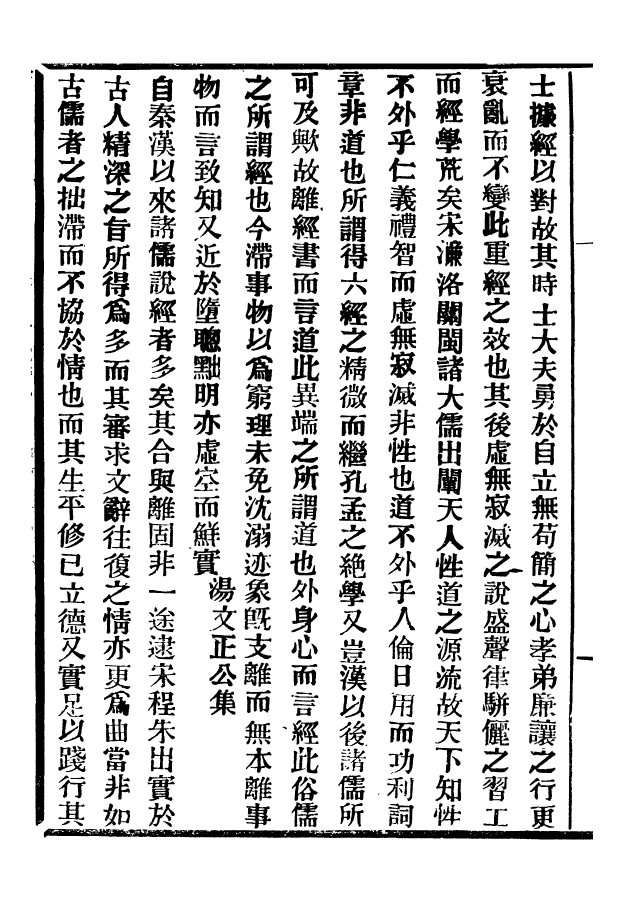 士據經以對故其時士大夫勇於自立無苟簡之心孝弟廉讓之行更
衰亂而不變此重經之效也其後虛無寂滅之說盛聲律騈儷之習工
而經學荒矣宋濂洛關閩諸大儒出闡天人性道之源流故天下知性
不外乎仁義禮智而虛無寂滅非性也道不外乎人倫日用而功利詞
章非道也所謂得六經之精微而繼孔孟之絕學又豈漢以後諸儒所
可及歟故離經書而言道此異端之所謂道也外身心而言經此俗儒
之所謂經也今滯事物以爲窮理未免沈溺迹象旣支離而無本離事
物而言致知又近於墮聰黜明亦虛空而鮮實 湯文正公集
自秦漢以來諸儒說經者多矣其合與離固非一途逮宋程朱出實於
古人精深之旨所得爲多而其審求文辭往復之情亦更爲曲當非如
古儒者之拙滯而不協於情也而其生平修已立德又實足以踐行其